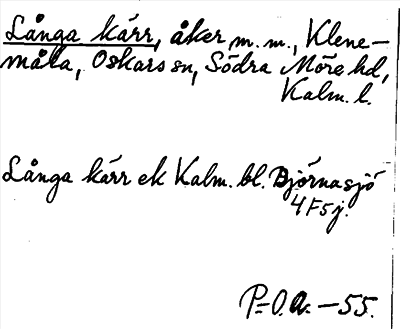 Långa kärr, åker m.m., Klene-
måla, Oskars sn, Södra Möre hd,
Kalm. l.
Långa kärr ek Kalm. bl. Björnasjö
4F5j.
P-O.A. -55.